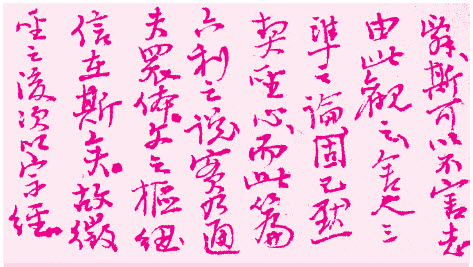 斯可以不害
由此觀之舍人三
準之論固已默
契聖心而此篇
六利之說實乃通
夫眾体文之樞紐
信在斯矣故徵
聖之後次以宗經